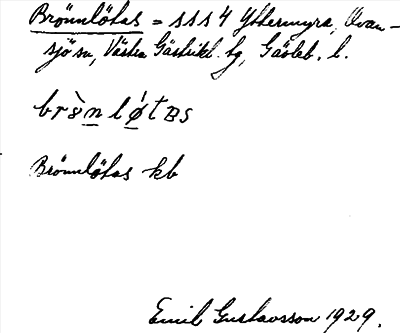 Brömnlötas = sss 4 Yttermyra, Ovan-
sjö sn, Västra Gästrikl. tg, Gävleb. l.
brön löt BS
Brömnlötas kb
Emil Gustavsson 1929.